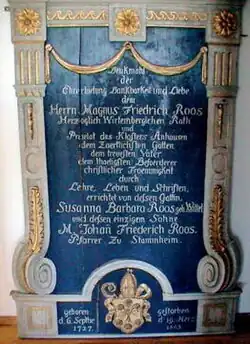 Denkmahl
der
Ehrerbietung Dankbarkeit und Liebe
dem
Herrn Magnus Friedrich Roos
Herzoglich Wirtembergischen Rath
und
Prælat des Klosters Anhausen
dem Zaertlichsten Gatten
dem treuesten Vater
dem thaetigsten Befoerderer
christlicher Froemmigkeit
durch
Lehre, Leben und Schriften,
errichtet von dessen Gattin,
Susanna Barbara Roos geb.
und dessen einzigem Sohne
M. Johan Friederich Roos.
Pfarrer Zu Stammheim.
geboren
d. 6. Septbr
1727.
gestorben
d. 19. Merz
1803.